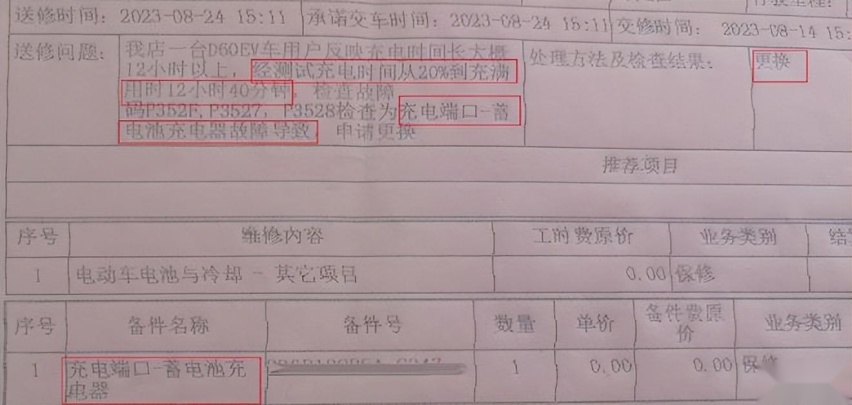 送修时间: 2023-08-24 15:11 承诺交车时间: 2023-08-24 15:11 交修时间: 2023-08-14 15:
送修问题: 我店一台D60EV车用户反映充电时间长大概 处理方法及检查结果: 更换
12小时以上, 经测试充电时间从20%到充满
用时12小时40分钟, 检查故障
码P352F, P3527, P3528检查为充电端口-蓄
电池充电器故障导致, 申请更换
推荐项目
序号 维修内容 工时费原价 业务类别 结
1 电动车电池与冷却 - 其它项目 0.00 保修
序号 备件名称 备件号 数量 单价 备件费原价 业务类别
1 充电端口-蓄电池充 1 0.00 0.00 保修
电器